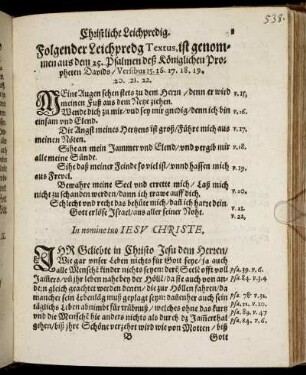 538.
Christliche Leichpredig.
Folgender Leichpredg Textus, ist genom-
men aus dem 25. Psalmen deß Königlichen Pro-
pheten Davids / Versibus 15. 16. 17. 18. 19.
20. 21. 22.
MEine Augen sehen stets zu dem Herrn / denn er wird v.15,
meinen Fuß aus dem Netze ziehen.
Wende dich zu mir / und sey mir gnedig / denn ich bin v.16.
einsam und Elend.
Die Angst meines Hertzens ist groß / Führe mich aus v.17.
meinen Nöten.
Sihe an mein Jammer und Elend / und vergib mir v.18.
alle meine Sünde.
Sih daß meiner Feinde so viel ist / unnd hassen mich v.19.
aus Frevel.
Bewahre meine Seel und errette mich / Laß mich
nicht zu schanden werden / dann ich trawe auff dich. v.20.
Schlecht und recht das behüte mich / daß ich harre dein. v.21.
Gott erlöse Israel / aus aller seiner Noht. v.22,
In nomine tuo IESU CHRISTE,
IHR Geliebte in Christo Jesu dem Herren /
Wie gar unser Leben nichts für Gott seye / ja auch Psa. 39. v. 6.
alle Menschē sinder nichts seyen: derē Seel offt voll
Jam̄ers / uñ ihr leben nahe bey der Höll / da sie auch von an- Psa. 88. v. 3. 4
dern gleich geachtet werden denen / die zur Höllen fahren / da
mancher sein Lebenläg muß geplagt seyn: daßmher auch sein Psa. 78. v. 31.
täglichs Leben abnimbt für trübnuß / welches ohne das kurtz Psa. 31. v. 11.
und die Menschē hie anders nichts als durch dz Jam̄erthal Psa. 89. v. 47
gehen / biß jhre Schöne verzehrt wird wie von Motten / biß Psa. 84. v. 6.
B
Gott